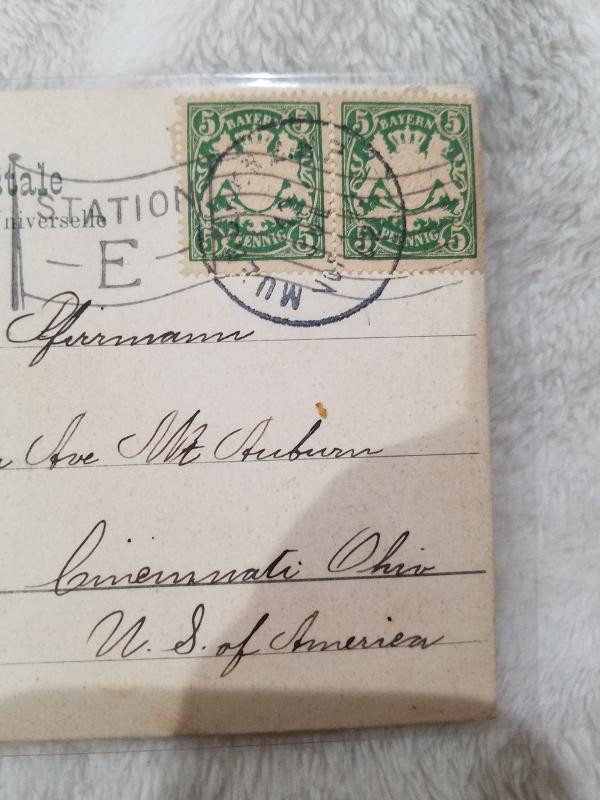 5 BAYERN 5
5 PENNIG 5
5 BAYERN 5
5 PENNIG 5
stale
niverselle
STATION
E
MU
Pfirrmann
Ave Mt Auburn
Cincinnati Ohio
U. S. of America